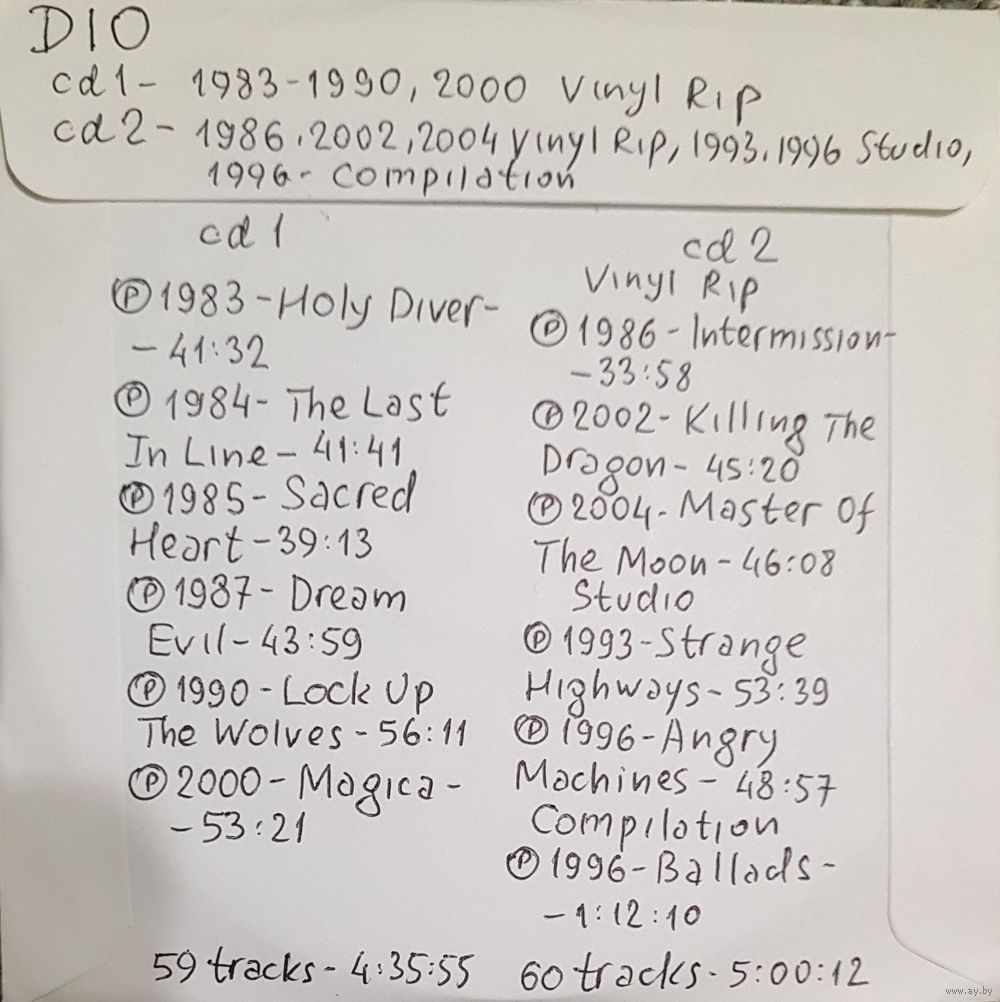 DIO
cd1- 1983-1990, 2000 Vinyl Rip
cd2- 1986.2002,2004 Vinyl Rip, 1993.1996 Studio,
1996- Compilation
cd 1
Ⓟ1983-Holy Diver-
-41:32
Ⓟ 1984- The Last
In Line- 41:41
Ⓟ1985- Sacred
Heart-39:13
Ⓟ1987- Dream
Evil-43:59
Ⓟ1990-Lock Up
The Wolves-56:11
Ⓟ2000-Magica-
-53:21
59 tracks- 4:35:55
cd 2
Vinyl Rip
Ⓟ1986-Intermission-
-33:58
Ⓟ2002-Killing The
Dragon- 45:20
Ⓟ2004-Master Of
The Moon-46:08
Studio
Ⓟ1993-Strange
Highways-53:39
Ⓟ1996-Angry
Machines- 48:57
Compilation
Ⓟ1996-Ballads-
-1:12:10
60 tracks- 5:00:12
www.ay.by